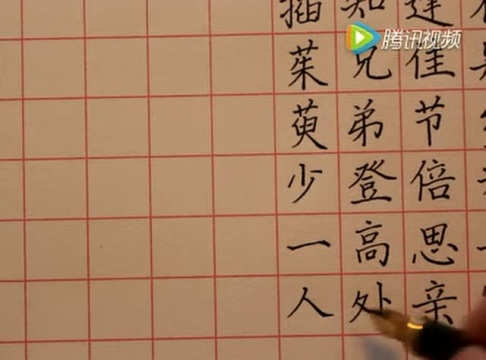 逢佳节倍思亲
知兄弟登高处
插茱萸少一人
腾讯视频